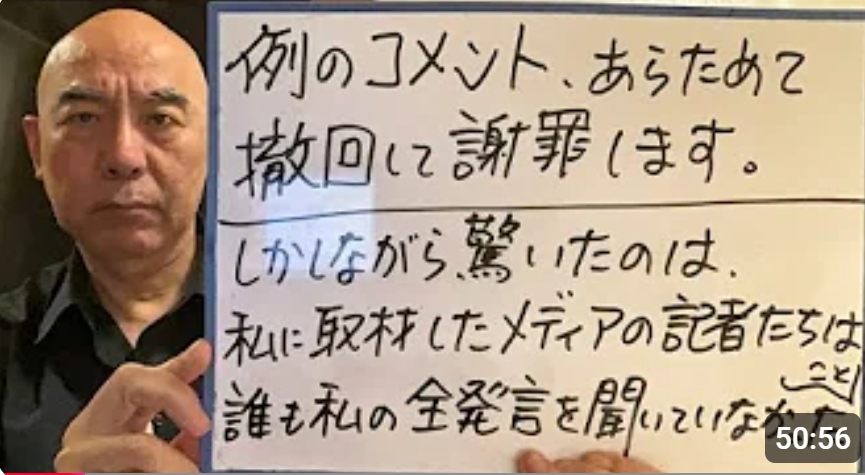 例のコメント、あらためて
撤回して謝罪します。
しかしながら、驚いたのは、
私に取材したメディアの記者たちは
誰も私の全発言を聞いていなかったこと
50:56